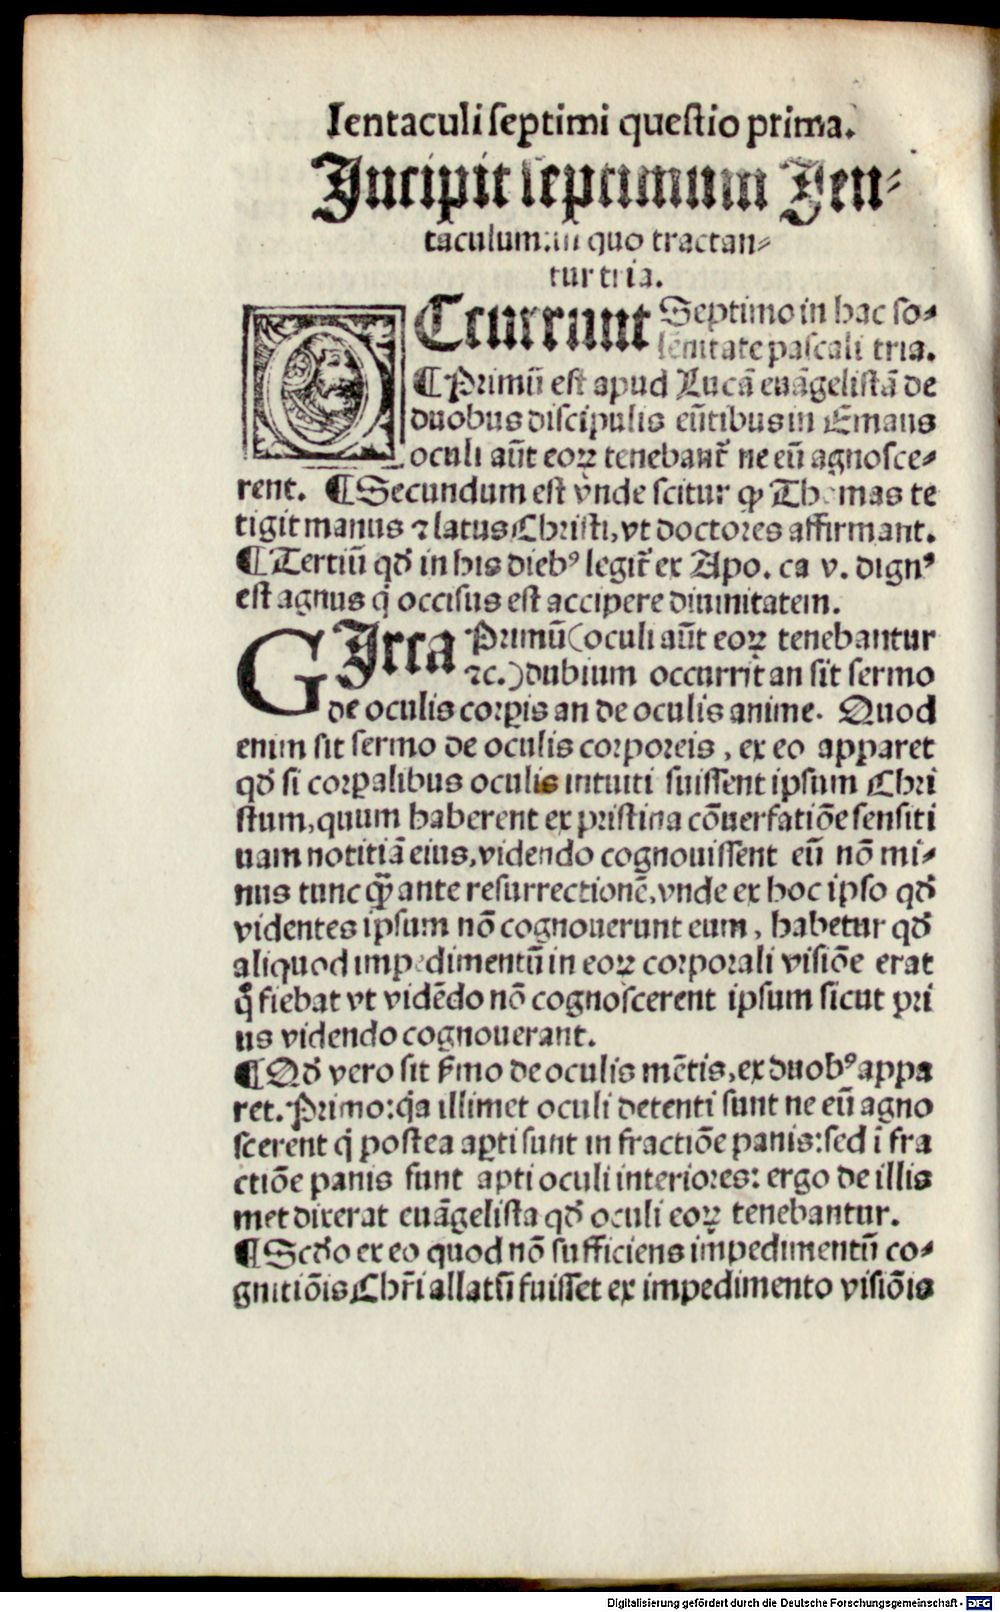 Ientaculi septimi questio prima.
Incipit septimum Jen⸗
taculum: in quo tractan⸗
tur tria.
OCcurrunt Septimo in hac so⸗
lēnitate pascali tria.
¶ Primū est apud Lucā euāgelistā de
duobus discipulis eūtibus in Emaus
oculi aūt eoꝝ tenebant᷑ ne eū agnosce⸗
rent. ¶ Secundum est vnde scitur ꝙ Thomas te
tigit manus ⁊ latus Christi, vt doctores affirmant.
¶ Tertiū qď in his dieb⁹ legit᷑ ex Apo. ca v. dign⁹
est agnus q̇ occisus est accipere diuinitatem.
CIrca Primū (oculi aūt eoꝝ tenebantur
⁊c.) dubium occurrit an sit sermo
de oculis corꝑis an de oculis anime. Quod
enim sit sermo de oculis corporeis, ex eo apparet
qď si corꝑalibus oculis intuiti fuissent ipsum Chri
stum, quum haberent ex pristina cōuersatiōe sensiti
uam notitiā eius, videndo cognouissent eū nō mi⸗
nus tunc ꝙ̄ ante resurrectionē, vnde ex hoc ipso qď
videntes ipsum nō cognouerunt eum, habetur qď
aliquod impedimentū in eoꝝ corporali visiōe erat
q̊ fiebat vt vidēdo nō cognoscerent ipsum sicut pri
us videndo cognouerant.
¶ Qď vero sit s̄mo de oculis mētis, ex duob⁹ appa
ret. Primo: qa illimet oculi detenti sunt ne eū agno
scerent q̇ postea aꝑti sunt in fractiōe panis: sed ī fra
ctiōe panis sunt apti oculi interiores: ergo de illis
met dixerat euāgelista qď oculi eoꝝ tenebantur.
¶ Scďo ex eo quod nō sufficiens impedimentū co⸗
gnitiōis Chr̄i allatū fuisset ex impedimento visiōis
Digitalisierung gefördert durch die Deutsche Forschungsgemeinschaft - DFG